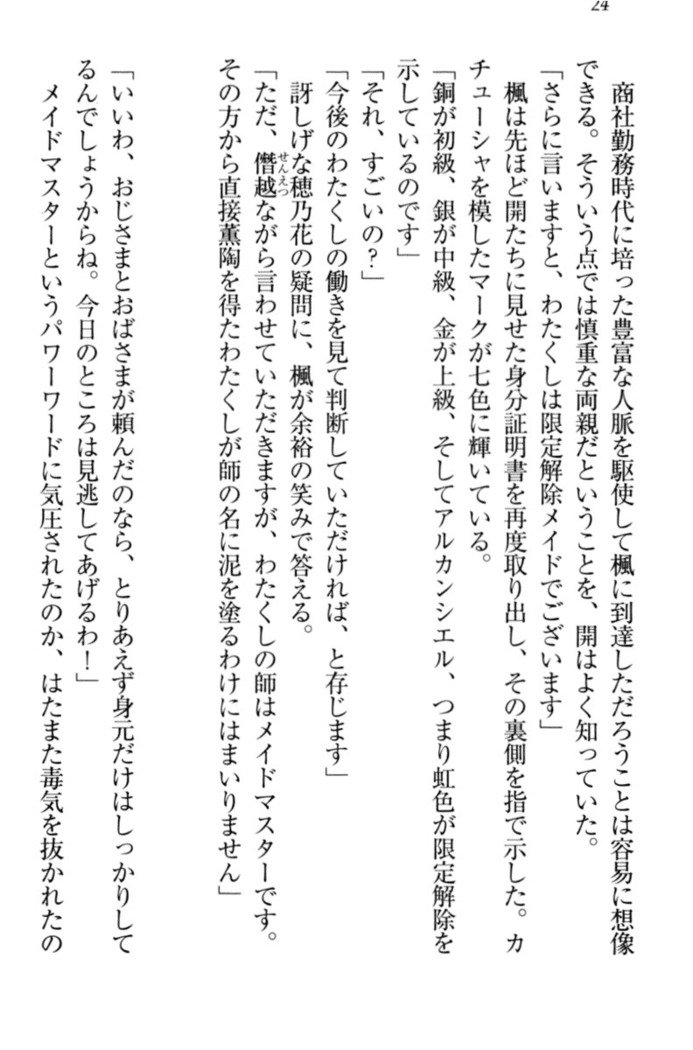 24
商社勤務時代に培った豊富な人脈を駆使して楓に到達しただろうことは容易に想像
できる。そういう点では慎重な両親だということを、開はよく知っていた。
「さらに言いますと、わたくしは限定解除メイドでございます」
楓は先ほど開たちに見せた身分証明書を再度取り出し、その裏側を指で示した。カ
チューシャを模したマークが七色に輝いている。
「銅が初級、銀が中級、金が上級、そしてアルカンシエル、つまり虹色が限定解除を
示しているのです」
「それ、すごいの？」
「今後のわたくしの働きを見て判断していただければ、と存じます」
訝しげな穂乃花の疑問に、楓が余裕の笑みで答える。
「ただ、僭越せんえつながら言わせていただきますが、わたくしの師はメイドマスターです。
その方から直接薫陶を得たわたくしが師の名に泥を塗るわけにはまいりません」
「いいわ、おじさまとおばさまが頼んだのなら、とりあえず身元だけはしっかりして
るんでしょうからね。今日のところは見逃してあげるわ！」
メイドマスターというパワーワードに気圧されたのか、はたまた毒気を抜かれたの